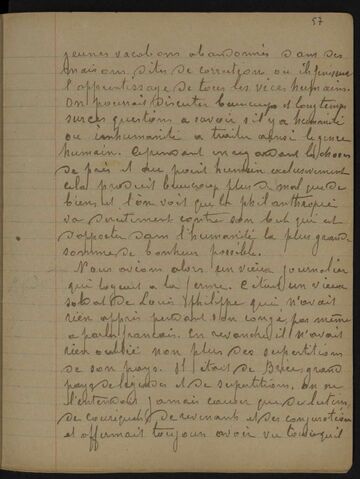 57
jeunes vacabons abandonnés dans des
maisons dites de correction ou ils finissent
l'apprentissage de tous les vices humains.
On pourrait discuter beaucoup et longtemps
sur ces questions a savoir s'il y a humanité
ou inhumanité a traiter ainsi le genre
humain. Cependant en regardant la chose
de près et au point humain exclusivement
cela produit beaucoup plus de mal que de
biens et l'on voit que la philanthropie
va directement contre son but qui est
d'apporter dans l'humanité la plus grande
somme de bonheur possible.
Nous avions alors un vieux journalier
qui logeait a la ferme. C'etait un vieux
soldat de Louis Philippe qui n'avait
rien appris pendant son congé pas même
a parler francais. En revanche il n'avait
rien oublié non plus des supertitions
de son pays. Il était de Briec grand
pays de légendes et de supertitions. On ne
l'entendait jamais causer que de lutins,
de couriquets de revenants et des conjurations
et affirmait toujours avoir vu tout ce qu'il